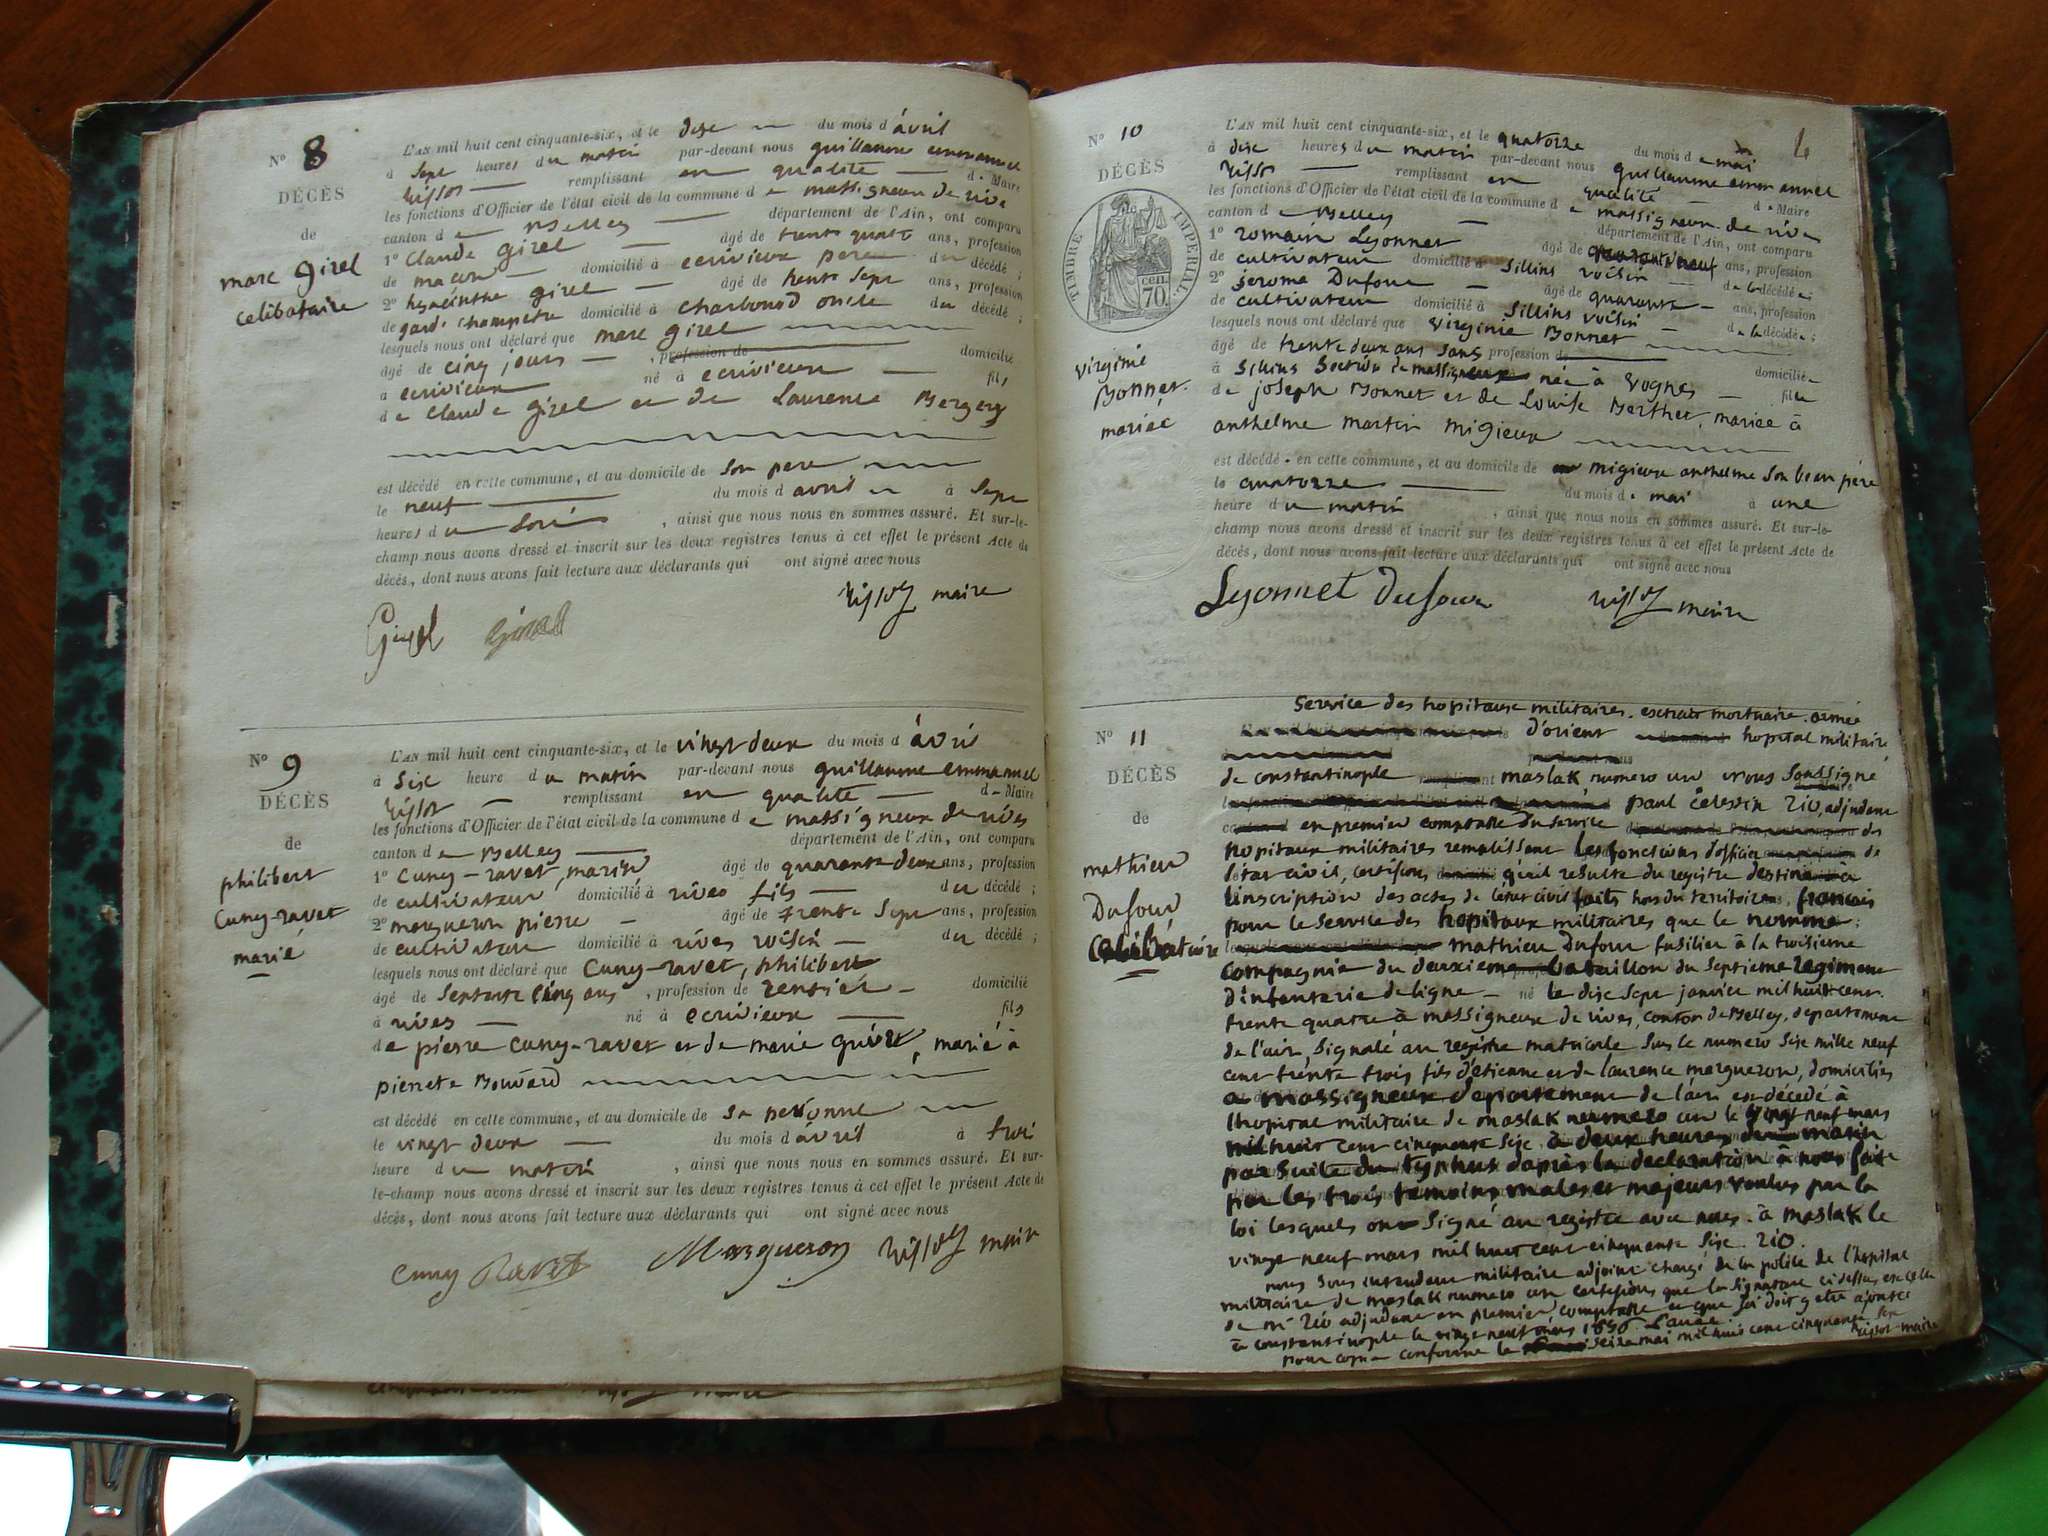 N° 8
DÉCÈS
de
marc Girel
celibataire
L'AN mil huit cent cinquante-six, et le dixe du mois d'avril
à sept heures du matin par-devant nous guillaume emmanuel
rissot remplissant en qualité de Maire
les fonctions d'Officier de l'état civil de la commune de massigneux de rive
canton de Belley département de l'Ain, ont comparu
1° Claude Girel âgé de trente quatre ans, profession
de maçon domicilié à ecrivieux pere du décédé ;
2° hyacinthe Girel âgé de trente sept ans, profession
de gard. champetre domicilié à charbonod oncle du décédé ;
lesquels nous ont déclaré que marc Girel
âgé de cinq jours , profession de domicilié
à ecrivieux né à ecrivieux fils
de Claude Girel et de Laurence Bergery
est décédé en cette commune, et au domicile de son pere
le neuf du mois d'avril à sept
heures du soir , ainsi que nous nous en sommes assuré. Et sur-le-
champ nous avons dressé et inscrit sur les deux registres tenus à cet effet le présent Acte de
décès, dont nous avons fait lecture aux déclarants qui ont signé avec nous
Girel Girel rissot maire
N° 9
DÉCÈS
de
philibert
Cuny-ravet
marié
L'AN mil huit cent cinquante-six, et le vingt deux du mois d'avril
à sixe heure du matin par-devant nous guillaume emmanuel
rissot remplissant en qualité de Maire
les fonctions d'Officier de l'état civil de la commune de massigneux de rives
canton de Belley département de l'Ain, ont comparu
1° Cuny-ravet, marin âgé de quarante deux ans, profession
de cultivateur domicilié à rives fils du décédé ;
2° margueron pierre âgé de trente sept ans, profession
de cultivateur domicilié à rives voisin du décédé ;
lesquels nous ont déclaré que Cuny-ravet, philibert
âgé de septante cinq ans , profession de rentier domicilié
à rives né à ecrivieux fils
de pierre Cuny-ravet et de marie , marié à
pierrete Bouvard
est décédé en cette commune, et au domicile de sa personne
le vingt deux du mois d'avril à troi
heure du matin , ainsi que nous nous en sommes assuré. Et sur-
le-champ nous avons dressé et inscrit sur les deux registres tenus à cet effet le présent Acte de
décès, dont nous avons fait lecture aux déclarants qui ont signé avec nous
Cuny Ravet Margueron rissot maire
4
N° 10
DÉCÈS
TIMBRE IMPERIAL
70 cen.
virginie
Bonnet.
mariée
L'AN mil huit cent cinquante-six, et le quatorze du mois de mai
à dixe heures du matin par-devant nous guillaume emmanuel
rissot remplissant en qualité de Maire
les fonctions d'Officier de l'état civil de la commune de massigneux de rives
canton de Belley département de l'Ain, ont comparu
1° romain Lyonnet âgé de quarante neuf ans, profession
de cultivateur domicilié à Sillins voisin de la décédée ;
2° jerome Dufour âgé de quarante ans, profession
de cultivateur domicilié à Sillins voisin de la décédée ;
lesquels nous ont déclaré que virginie Bonnet
âgé de trente deux ans sans profession de domiciliée
à Sillins Section de massigneux née à vognes fille
de joseph Bonnet et de Louise Berthet, mariée à
anthelme martin migieux
est décédée en cette commune, et au domicile de migieux anthelme son beau père
le quatorze du mois de mai à une
heure du matin , ainsi que nous nous en sommes assuré. Et sur-le-
champ nous avons dressé et inscrit sur les deux registres tenus à cet effet le présent Acte de
décès, dont nous avons fait lecture aux déclarants qui ont signé avec nous
Lyonnet Dufour rissot maire
N° 11
DÉCÈS
de
mathieu
Dufour
Celibataire
Service des hopitaux militaires. extrait mortuaire. armée
d'orient hopital militaire
de constantinople maslak, numero un nous soussigné
paul celestin rio, adjudent
en premier comptable du service des
hopitaux militaires remplissant les fonctions d'officier de
l'état civil, certifions qu'il resulte du registre destiné a
l'inscription des actes de l'état civil faits hors du territoire français
pour le service des hopitaux militaires que le nommé :
mathieu Dufour fusilier à la troisieme
compagnie du deuxieme bataillon du septieme regiment
d'infanterie de ligne né le dixe sept janvier mil huit cent
trente quatre à massigneux de rives, canton de Belley, departement
de l'ain, signalé au registre matricule sous le numero sixe mille neuf
cent trente trois fils d'etienne et de laurence margueron, domiciliés
à massigneux departement de l'ain est décédé à
l'hopital militaire de maslak numero un le vingt neuf mars
mil huit cent cinquante sixe à deux heures du matin
par suite du typhus d'après la declaration à nous faite
par les trois temoins males et majeurs voulus par la
loi lesquels ont signé au registre avec nous. à maslak le
vingt neuf mars mil huit cent cinquante sixe. rio.
nous sous intendant militaire adjoint chargé de la police de l'hopital
militaire de maslak numero un certifions que la signature ci dessus est celle
de mr rio adjudant en premier comptable et que foi doit y etre ajoutée
à constantinople le vingt neuf mars 1856
pour copie conforme le seize mai mil huit cent cinquante sixe
rissot maire